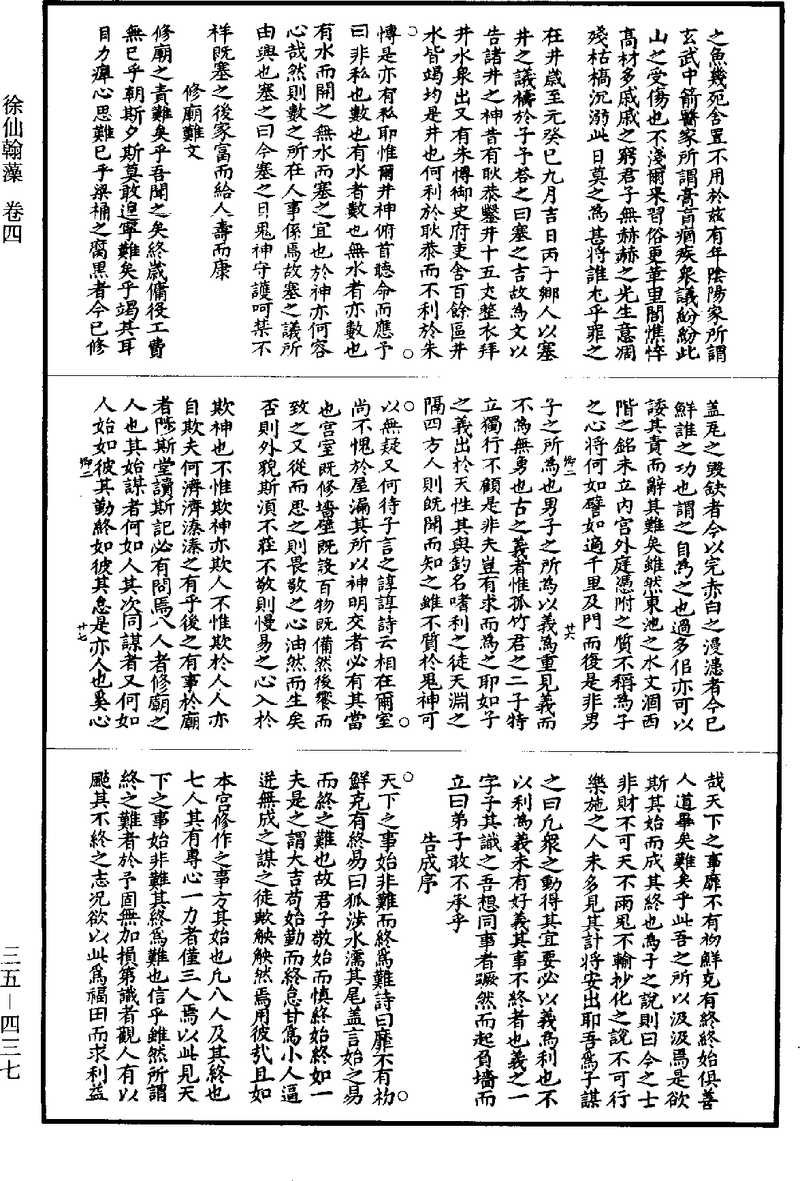 徐仙翰藻　卷四
三五—四三七
之魚幾死舍置不用於兹有年陰陽家所謂
玄武中箭醫家所謂膏肓痼疾衆議紛紛此
山之受傷也不淺爾来習俗更革里閭憔悴
髙材多戚戚之窮君子無赫赫之光生意凋
殘枯槁沉溺此日莫之為甚將誰尤乎罪之
在井歲至元癸巳九月吉日丙子鄉人以塞
井之議禱於予予荅之曰塞之吉故為文以
告諸井之神昔有耿恭鑿井十五丈整衣拜
井水衆出又有朱博御史府吏舎百餘區井
水皆竭均是井也何利於耿恭而不利於朱
博是亦有私耶惟爾井神俯首聽命而應予
曰非私也數也有水者數也無水者亦數也
有水而開之無水而塞之宜也於神亦何容
心哉然則數之所在人事係焉故塞之議所
由與也塞之曰今塞之日鬼神守護呵禁不
祥既塞之後家富而給人壽而康
修廟難文
修廟之責難矣乎吾聞之矣終歲傭役工費
無已乎朝斯夕斯莫敢遑寧難矣乎竭其耳
目力癉心思難已乎梁桶之腐黒者今已修
盖瓦之毀缺者今以完赤白之漫漶者今已
鮮誰之功也謂之自為之也過多佀亦可以
諉其責而辭其難矣雖然東池之水文涸西
階之銘未立内宫外庭憑附之質不稱為子
之心將何如譬如適千里及門而復是非男
子之所為也男子之所為以義為重見義而
不為無勇也古之義者惟孤竹君之二子特
立獨行不顧是非夫豈有求而為之耶如子
之義出於天性其與釣名嗜利之徒天淵之
隔四方人則旣聞而知之雖不質於鬼神可
以無疑又何待子言之諄諄詩云相在爾室
尚不愧於屋漏其所以神明交者必有其當
也宫室既修墻壁既設百物既備然後饗而
致之又從而思之則畏敬之心油然而生矣
否則外貌斯湏不莊不敬則慢易之心入於
欺神也不惟欺神亦欺人不惟欺於人人亦
自欺夫何濟濟溱溱之有乎後之有事於廟
者陟斯堂讀斯記必有問焉八人者修廟之
人也其始謀者何如人其次同謀者又何如
人始如彼其勤終如彼其怠是亦人也奚心
卿二
廿六
卿二
廿七
哉天下之事靡不有初鮮克有終終始俱善
人道畢矣難矣乎此吾之所以汲汲焉是欲
斯其始而成其終也為子之說則曰今之士
非財不可天不雨鬼不輸抄化之說不可行
樂施之人未多見其計將安出耶吾為子謀
之曰凡衆之動得其宜要必以義為利也不
以利為義未有好義其事不終者也義之一
字子其識之吾想同事者蹶然而起負墻而
立曰弟子敢不承乎
告成序
天下之事始非難而終為難詩曰靡不有初
鮮克有終易曰狐涉水濡其尾盖言始之易
而終之難也故君子敬始而慎終始終如一
夫是之謂大吉苟始勤而終怠甘為小人逼
迸無成之謀之徒歟觖觖然焉用彼㢤且如
本宫修作之事方其始也凢八人及其終也
七人其有專心一力者僅三人焉以此見天
下之事始非難其終為難也信乎雖然所謂
終之難者於予固無加損第識者觀人有以
颭其不終之志况欲以此為福田而求利益